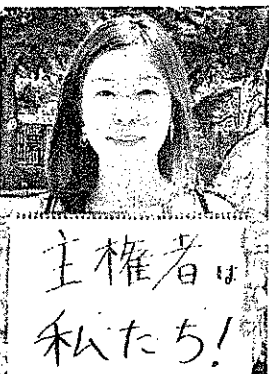 主権者は
私たち!